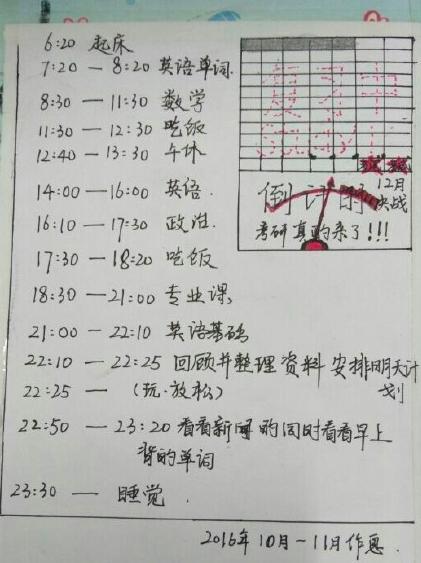 6:20 起床
7:20 — 8:20 英语单词
8:30 — 11:30 数学
11:30 — 12:30 吃饭
12:40 — 13:30 午休
14:00 — 16:00 英语
16:10 — 17:30 政治
17:30 — 18:20 吃饭
18:30 — 21:00 专业课
21:00 — 22:10 英语基础
22:10 — 22:25 回顾并整理资料 安排明天计划
22:25 — (玩·放松)
22:50 — 23:20 看看新闻的同时看看早上
背的单词
23:30 — 睡觉
2016年10月—11月作息
12月
决战
倒计时
考研真的来了!!!